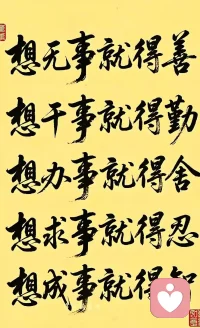 想无事就得善
想干事就得勤
想办事就得舍
想求事就得忍
想成事就得